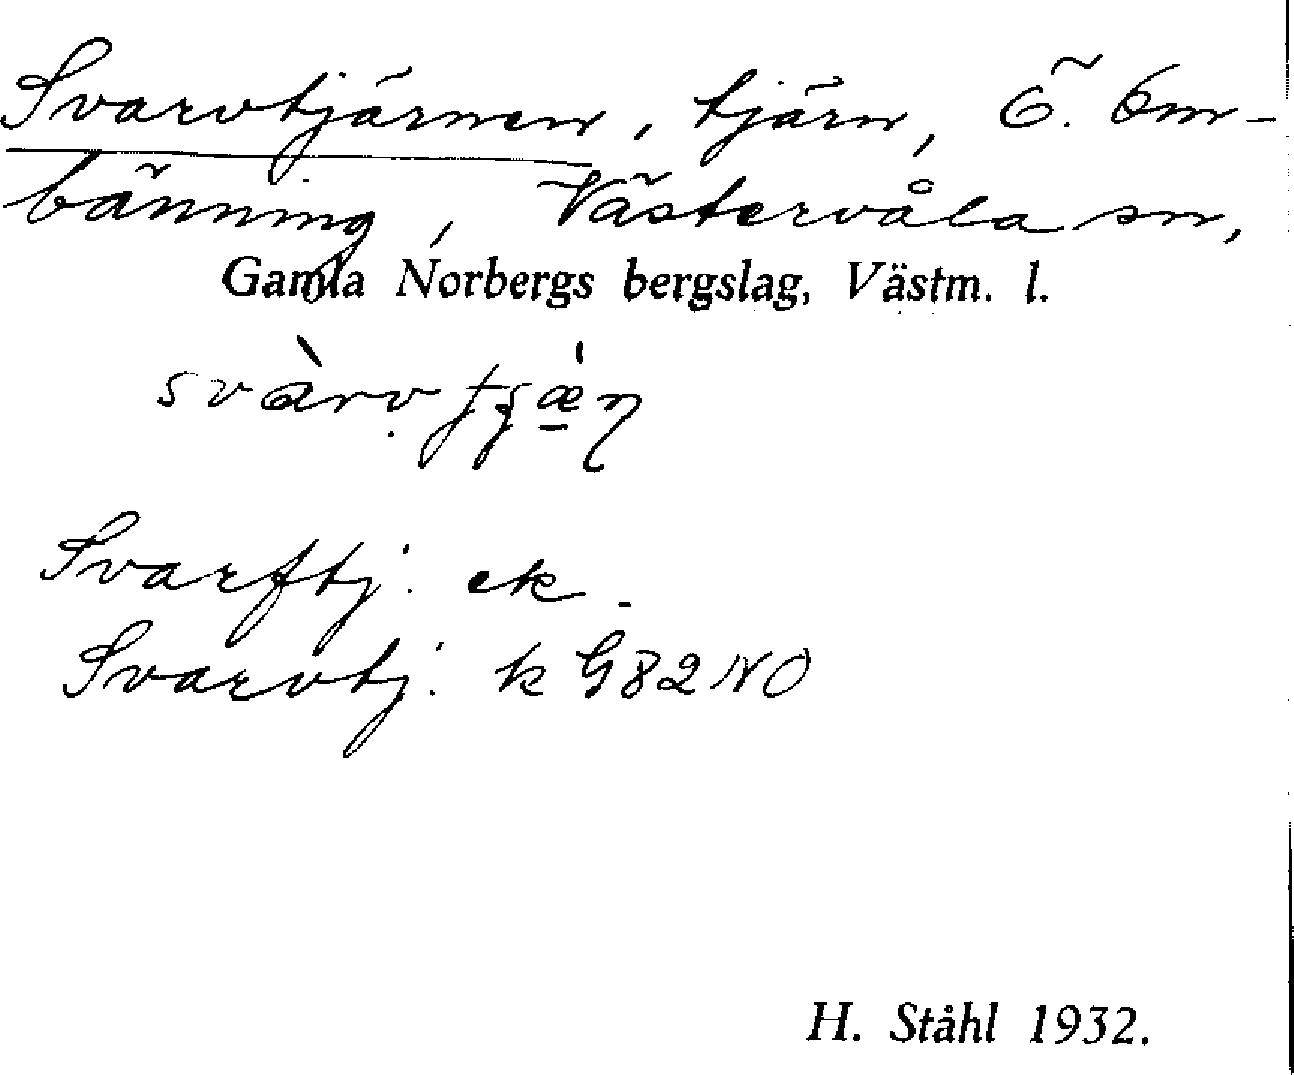 Svarvtjärnen, tjärn, Ö. Om-
bänning, Västervåla sn,
Gamla Norbergs bergslag, Västm. l.
Svarftj. ek.
Svarvtj. k G82NO
H. Ståhl 1932.